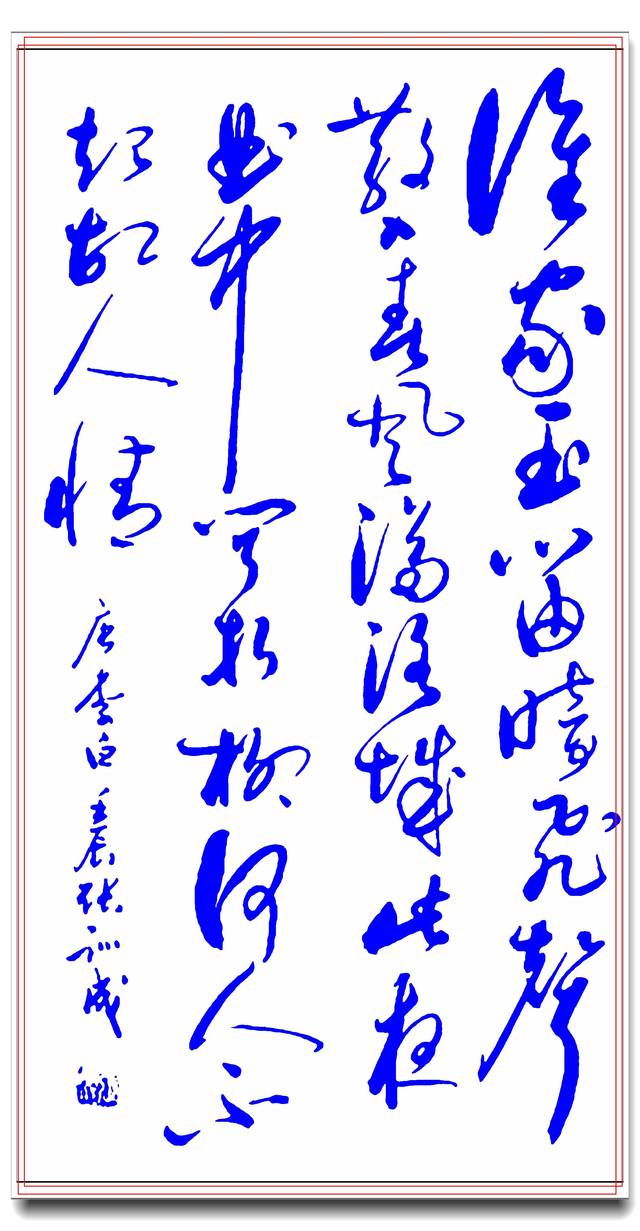 谁家玉笛暗飞声
散入春风满洛城此夜
曲中闻折柳何人不
起故人情
唐李白壬辰张训成